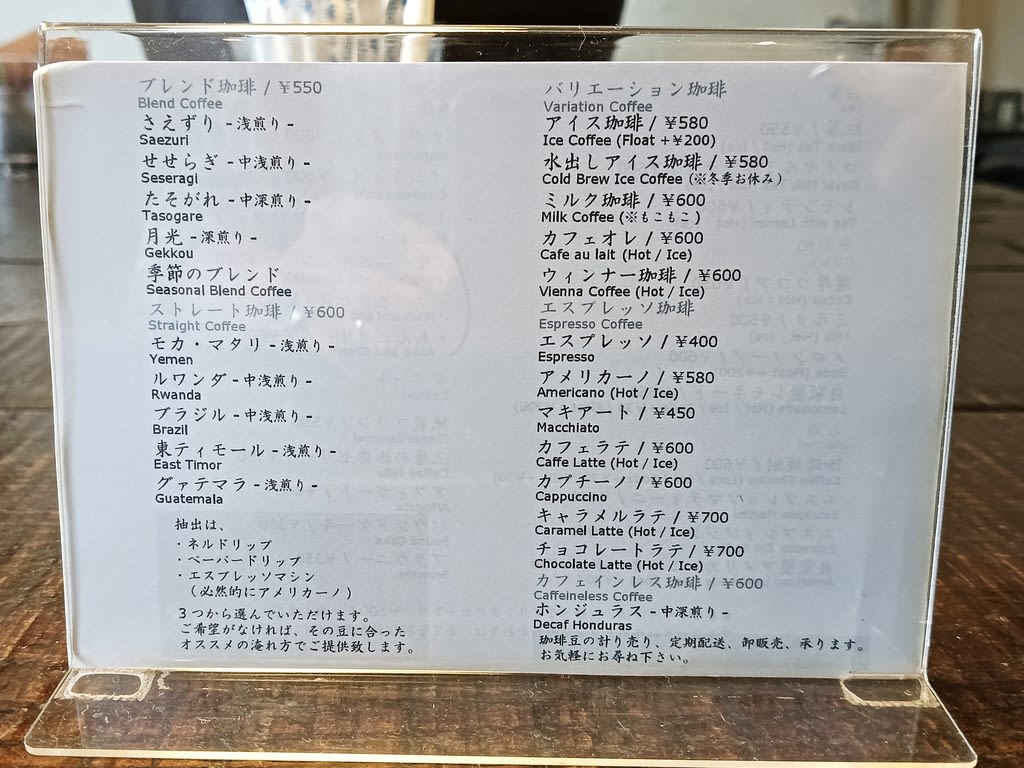 ブレンド珈琲 / ¥550
Blend Coffee
さえずり -浅煎り-
Saezuri
せせらぎ -中浅煎り-
Seseragi
たそがれ -中深煎り-
Tasogare
月光 -深煎り-
Gekkou
季節のブレンド
Seasonal Blend Coffee
ストレート珈琲 / ¥600
Straight Coffee
モカ・マタリ -浅煎り-
Yemen
ルワンダ -中浅煎り-
Rwanda
ブラジル -中浅煎り-
Brazil
東ティモール -浅煎り-
East Timor
グァテマラ -浅煎り-
Guatemala
抽出は、
・ネルドリップ
・ペーパードリップ
・エスプレッソマシン
(必然的にアメリカーノ)
３つから選んでいただけます。
ご希望がなければ、その豆に合った
オススメの淹れ方でご提供致します。
バリエーション珈琲
Variation Coffee
アイス珈琲 / ¥580
Ice Coffee (Float +¥200)
水出しアイス珈琲 / ¥580
Cold Brew Ice Coffee (※冬季お休み)
ミルク珈琲 / ¥600
Milk Coffee (※もこもこ)
カフェオレ / ¥600
Cafe au lait (Hot / Ice)
ウィンナー珈琲 / ¥600
Vienna Coffee (Hot / Ice)
エスプレッソ珈琲
Espresso Coffee
エスプレッソ / ¥400
Espresso
アメリカーノ / ¥580
Americano (Hot / Ice)
マキアート / ¥450
Macchiato
カフェラテ / ¥600
Caffe Latte (Hot / Ice)
カプチーノ / ¥600
Cappuccino
キャラメルラテ / ¥700
Caramel Latte (Hot / Ice)
チョコレートラテ / ¥700
Chocolate Latte (Hot / Ice)
カフェインレス珈琲 / ¥600
Caffeineless Coffee
ホンジュラス -中深煎り-
Decaf Honduras
珈琲豆の計り売り、定期配送、卸販売、承ります。
お気軽にお尋ね下さい。